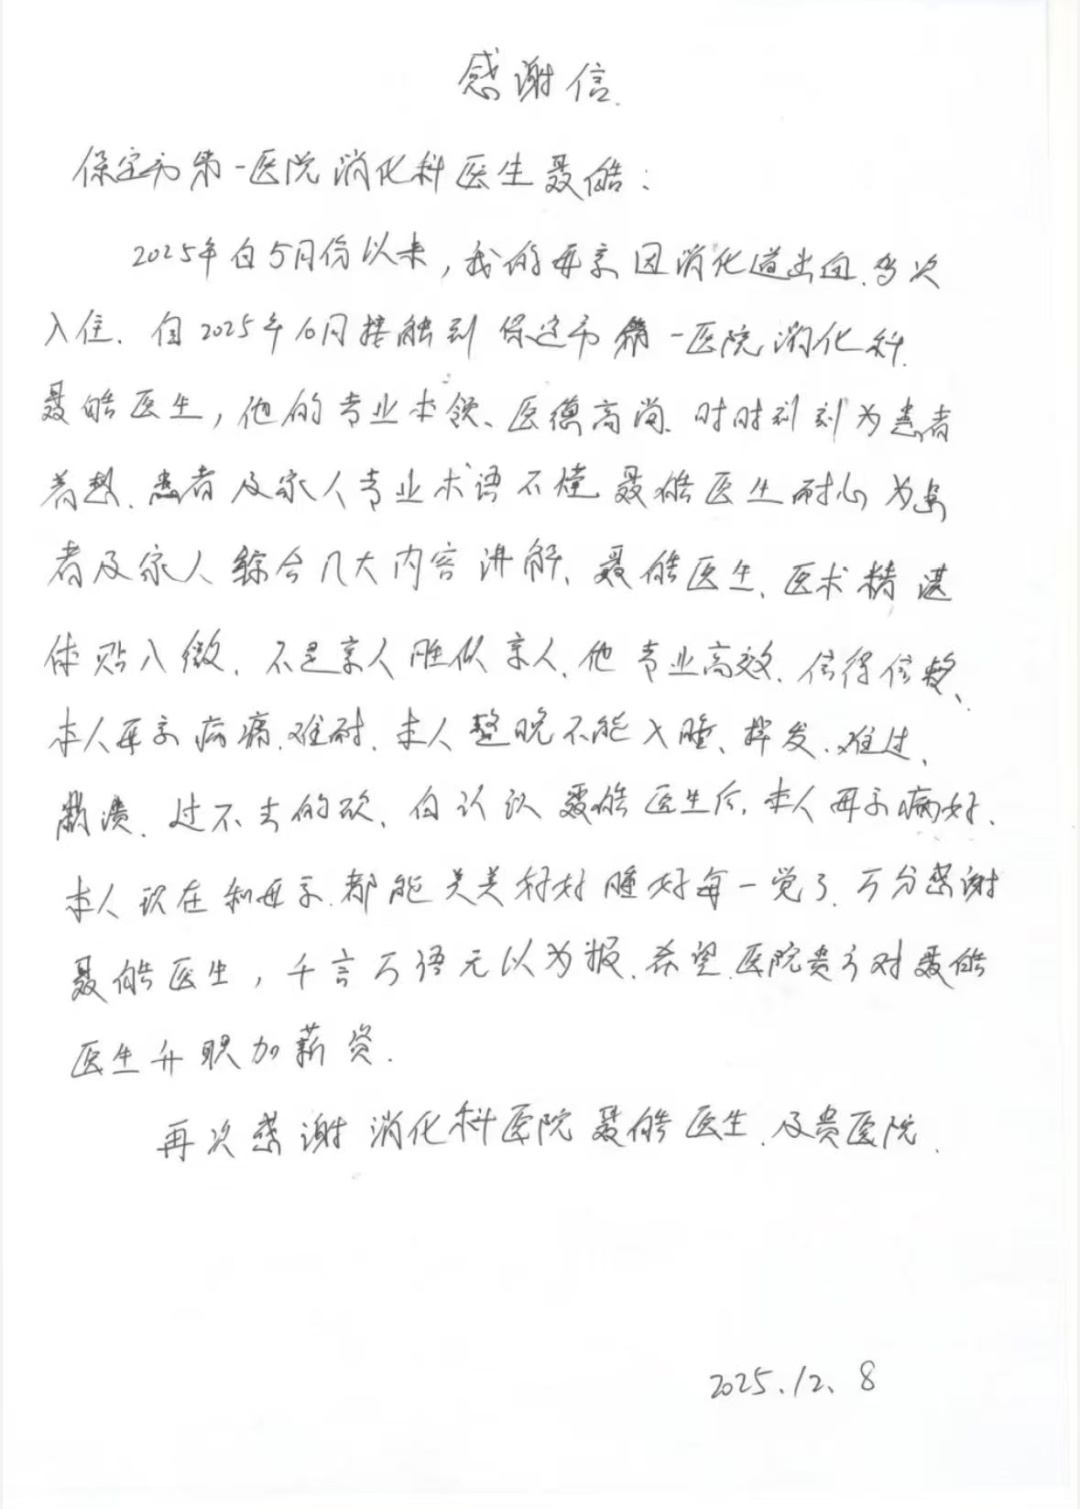 感谢信.
保定市第一医院消化科医生聂皓：
2025年自5月份以来，我的母亲因消化道出血.多次
入住.自2025年10月接触到保定市第一医院消化科.
聂皓医生，他的专业本领、医德高尚.时时刻刻为患者
着想.患者及家人专业术语不懂.聂皓医生耐心为患
者及家人综合几大内容讲解、聂皓医生、医术精湛
体贴入微.不是亲人胜似亲人.他专业高效.信得信赖、
本人母亲病痛.难耐.本人整晚不能入睡、挥发.难过、
崩溃.过不去的砍、自认识聂皓医生后.本人母亲病好.
本人现在和母亲.都能美美好好睡好每一觉了.万分感谢
聂皓医生，千言万语无以为报.希望.医院贵方对聂皓
医生升职加薪资.
再次感谢消化科医院聂皓医生.及贵医院.
2025.12.8